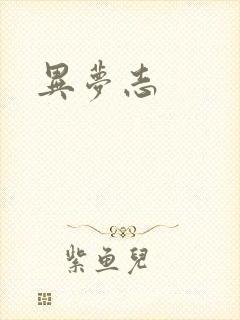 異夢志
紫鱼兒